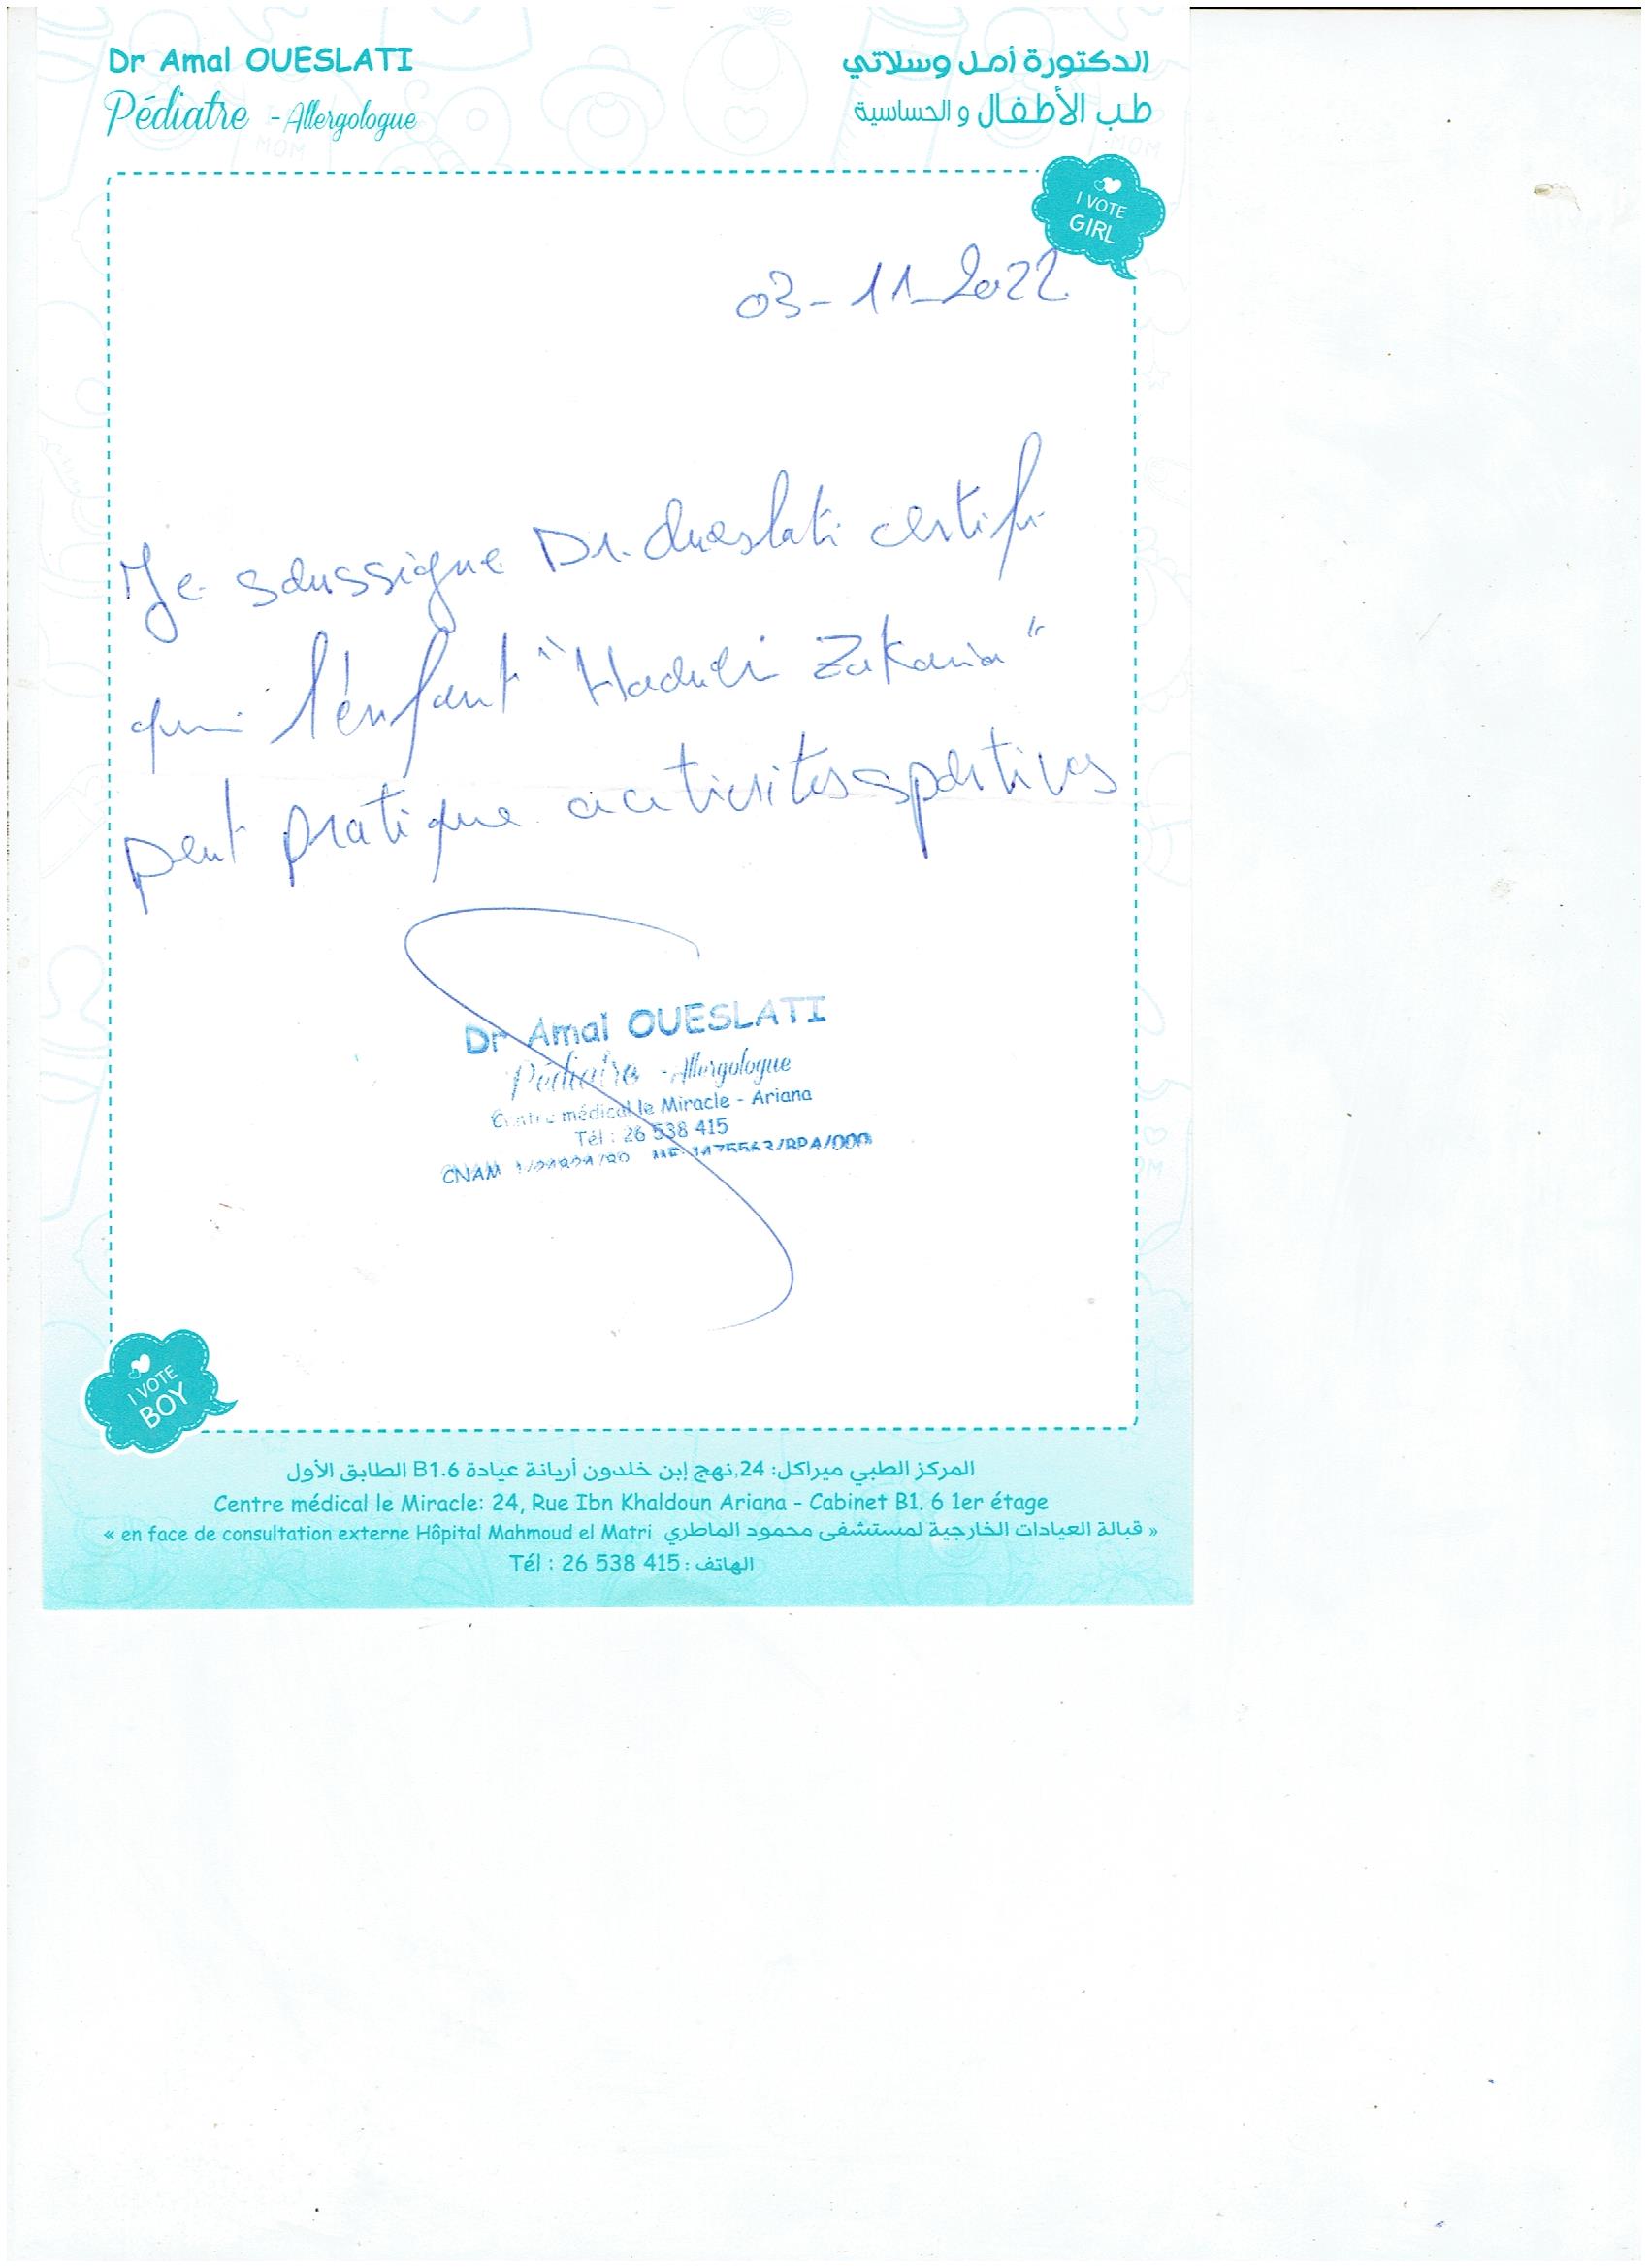 Dr Amal OUESLATI
الدكتورة أمل وسلاتي
Pédiatre - Allergologue
طب الأطفال و الحساسية
I VOTE
GIRL
03-11-2022
Je soussigne Dr. Oueslati certifi
que l'enfant " Zakaria"
peut pratique activites sportives
Dr Amal OUESLATI
Pédiatre - Allergologue
Centre médical le Miracle - Ariana
Tél : 26 538 415
CNAM
I VOTE
BOY
المركز الطبي ميراكل: 24,نهج إبن خلدون أريانة عيادة B1.6 الطابق الأول
Centre médical le Miracle: 24, Rue Ibn Khaldoun Ariana - Cabinet B1. 6 1er étage
« en face de consultation externe Hôpital Mahmoud el Matri قبالة العيادات الخارجية لمستشفى محمود الماطري »
Tél : 26 538 415 : الهاتف